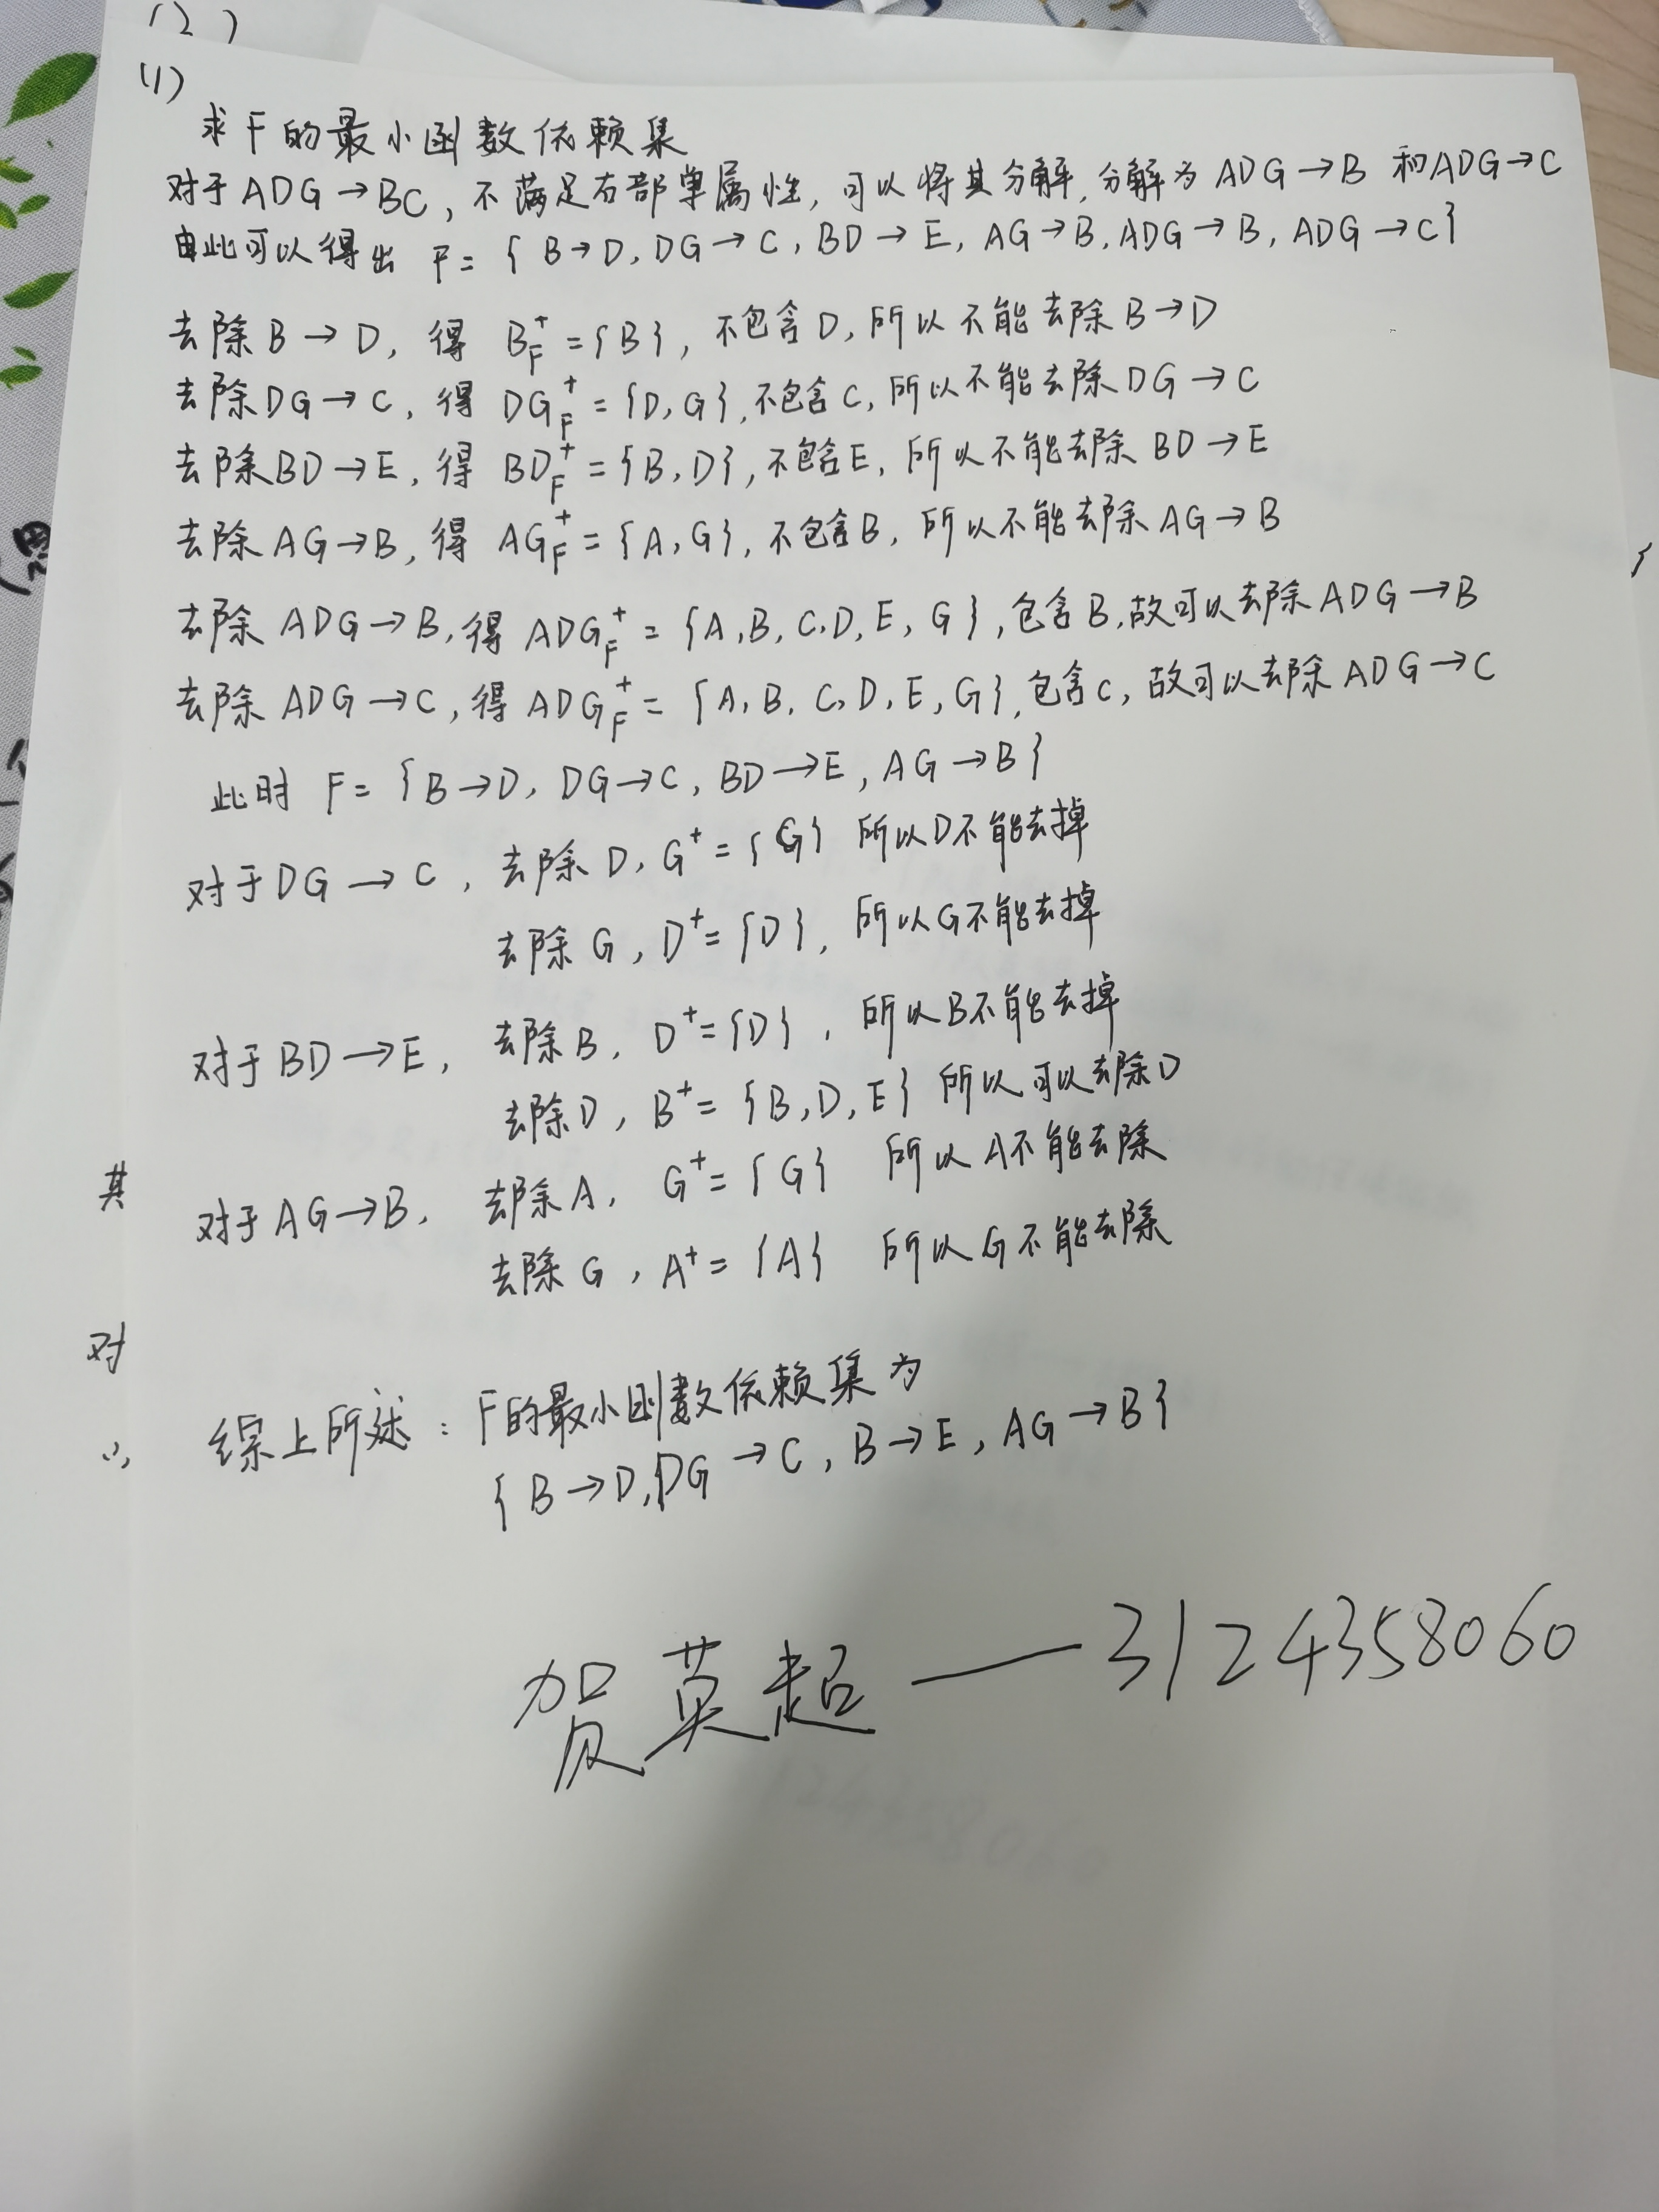 (2)
(1)
求F的最小函数依赖集
对于ADG→BC，不满足右部单属性，可以将其分解，分解为ADG→B 和ADG→C
由此可以得出 F={B→D, DG→C, BD→E, AG→B, ADG→B, ADG→C}
去除B→D，得 B_F^+={B}，不包含D，所以不能去除B→D
去除DG→C，得 DG_F^+={D,G}，不包含C，所以不能去除DG→C
去除BD→E，得 BD_F^+={B,D}，不包含E，所以不能去除BD→E
去除AG→B，得 AG_F^+={A,G}，不包含B，所以不能去除AG→B
去除ADG→B，得ADG_F^+={A,B,C,D,E,G}，包含B，故可以去除ADG→B
去除ADG→C，得ADG_F^+={A,B,C,D,E,G}，包含C，故可以去除ADG→C
此时 F={B→D, DG→C, BD→E, AG→B}
对于DG→C，去除D，G^+={G} 所以D不能去掉
去除G，D^+={D}，所以G不能去掉
对于BD→E，去除B，D^+={D}，所以B不能去掉
去除D，B^+={B,D,E} 所以可以去除D
对于AG→B，去除A，G^+={G} 所以A不能去除
去除G，A^+={A} 所以G不能去除
其
对
综上所述：F的最小函数依赖集为
{B→D, DG→C, B→E, AG→B}
贺英超——3124358060